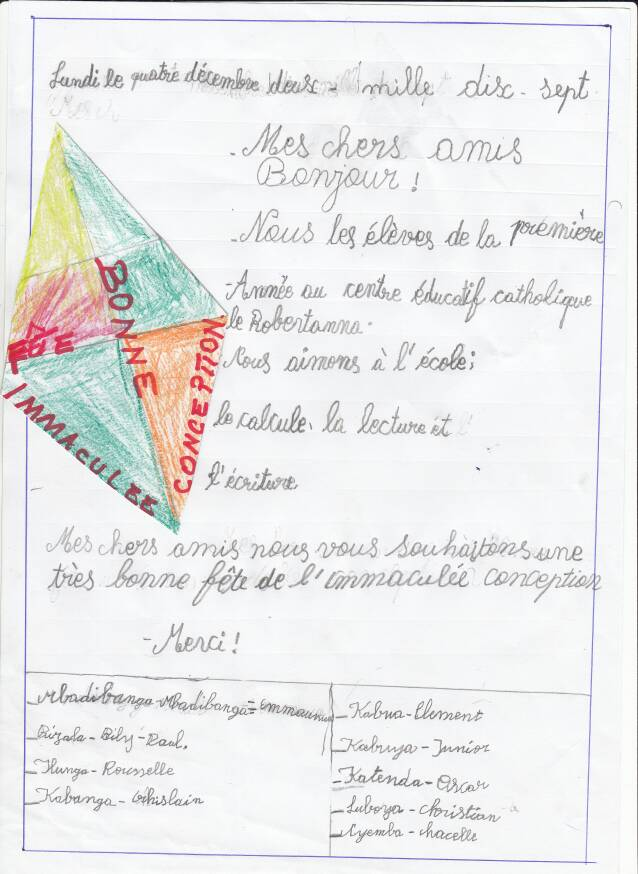 Lundi le quatre décembre deusc - mille disc - sept
- Mes chers amis
Bonjour !
- Nous les élèves de la première
- Année au centre éducatif catholique
le Robertanna.
Nous aimons à l'école;
le calcule, la lecture et
l'écriture.
BONNE
FÊTE
IMMACULEE
CONCEPTION
Mes chers amis nous vous souhaitons une
très bonne fête de l'immaculée conception
- Merci !
- Mbadibanga - Mbadibanga =
- Bily - Paul.
- Ilunga - Rousselle
- Kabanga - Ghislain
- Kabua - Clement
- Kabuya - Junior
- Katenda - Oscar
- Luboya - Christian
- Nyemba - chacelle